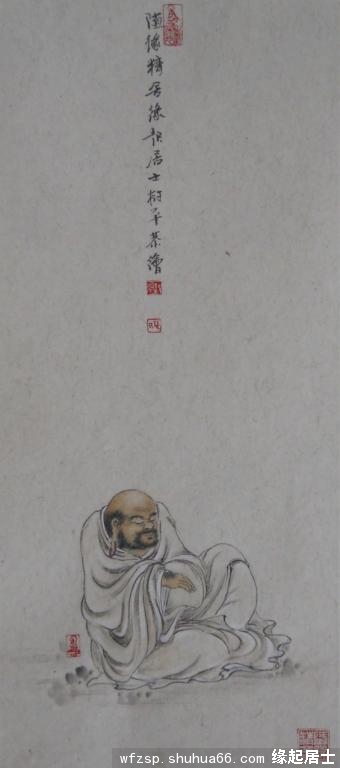 隨緣精舍緣起居士樹平恭繪
wfzsp.shuhua66.com 缘起居士